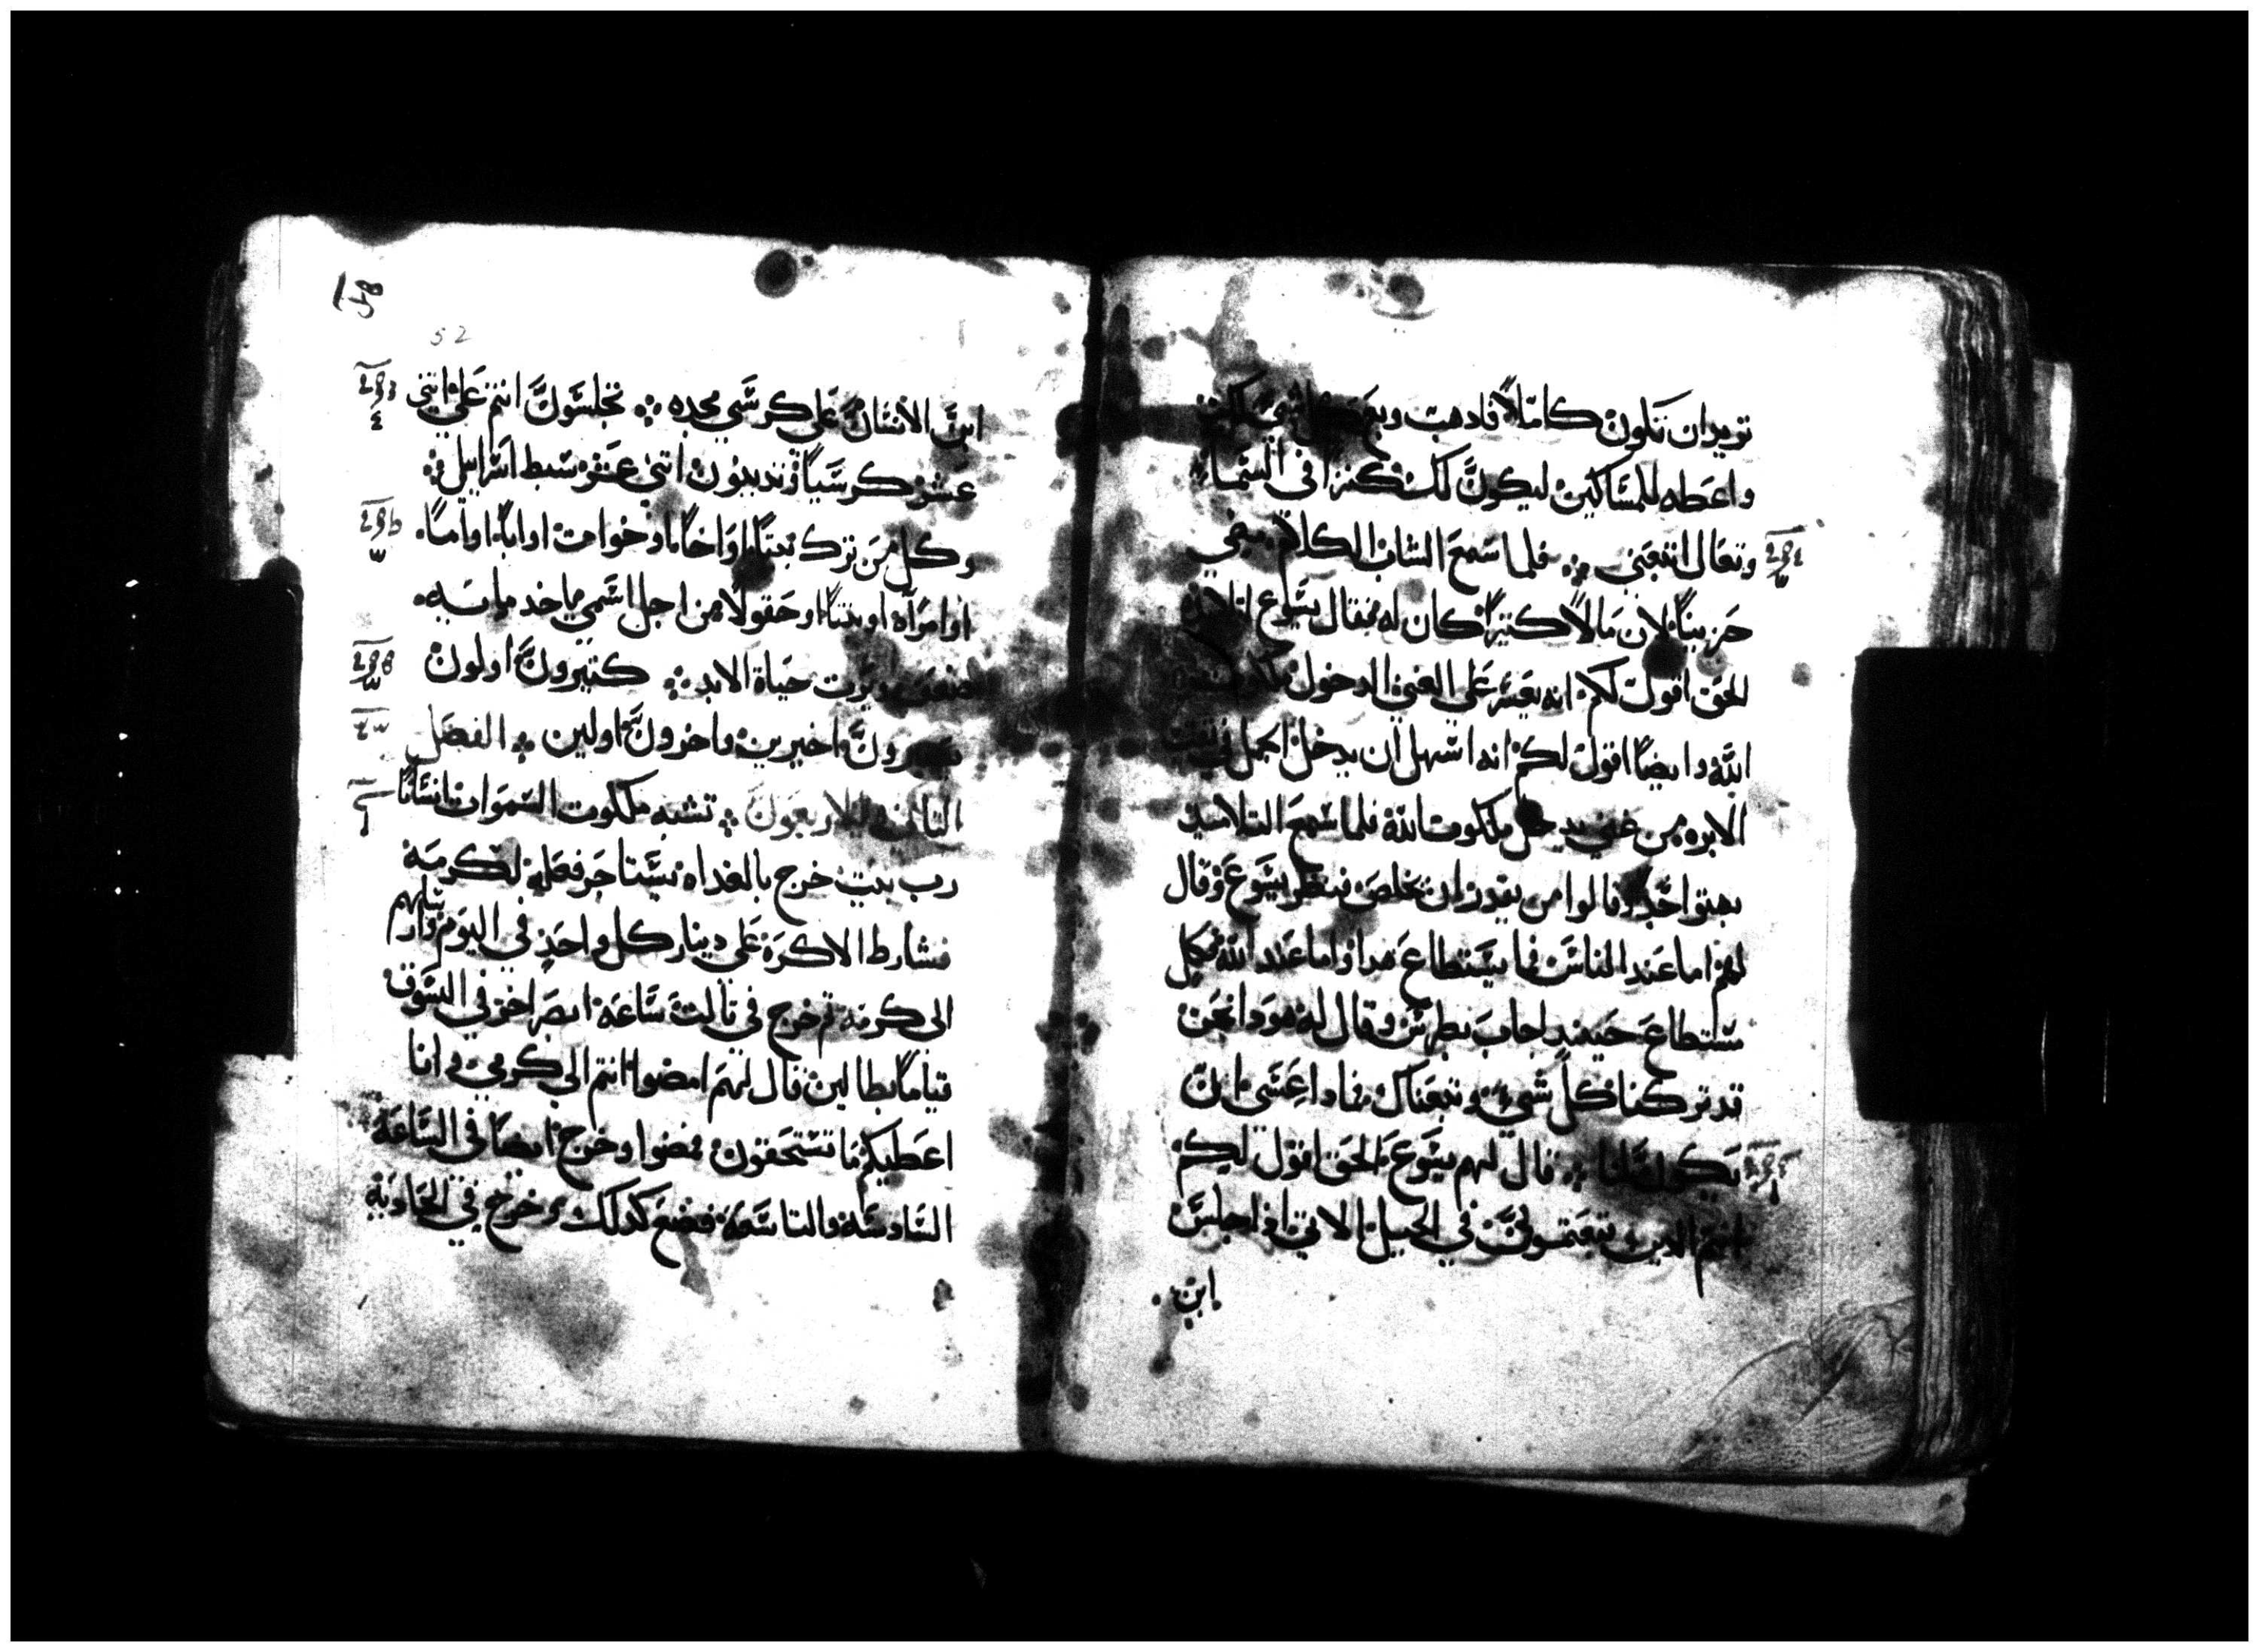 تريد ان تكون كاملاً فادهب وبع كل شي لك
واعطه للمساكين ليكون لك كنزاً في السماء
وتعال اتبعني ܀ فلما سمع الشاب الكلام مضي
حزيناً لان مالاً كتيراً كان له فقال يسوع لتلاميده
الحق اقول لكم انه يعسر علي الغني الدخول
الله وايضاً اقول لكم انه اسهل ان يدخل الجمل في تقب
الابره من غني يدخل ملكوت الله فلما سمع التلاميد
بهتوا جداً وقالوا من يقدر ان يخلص فنظر يسوع وقال
لهم اما عند الناس فما يستطاع هدا واما عند الله فكل
مستطاع حينيد اجاب بطرس وقال له هودا نحن
قد تركنا كل شي وتبعناك فمادا عسي ان
يكون لنا ܀ قال لهم يسوع الحق اقول لكم
انتم الدين تبعتموني في الجيل الاتي ادا جلس
ابن
52
ابن الانسان علي كرسي مجده ܀ تجلسون انتم علي اتني
عشر كرسياً وتدينون اتني عشر سبط اسراييل ܀
وكل من ترك بيتاً او اخاً او اخوات او اباً او اماً
او امراه او بنتاً او حقولاً من اجل اسمي ياخد مايه
ضعف ويرت حياة الابد ܀ كتيرون اولون
يصيرون اخيرين واخرون اولين ܀ الفصل
التالت والاربعون ܀ تشبه ملكوت السموات انساناً
رب بيت خرج بالغداه يستاجر فعله لكرمه
فشارط الاكره علي دينار كل واحد في اليوم وارسلهم
الي كرمه تم خرج في تالت ساعه ابصر اخر في السوق
قياماً بطالين قال لهم امضوا انتم الي كرمي وانا
اعطيكم ما تستحقون فمضوا وخرج ايضاً في الساعه
السادسه والتاسعه فصنع كدلك وخرج في الحاديه